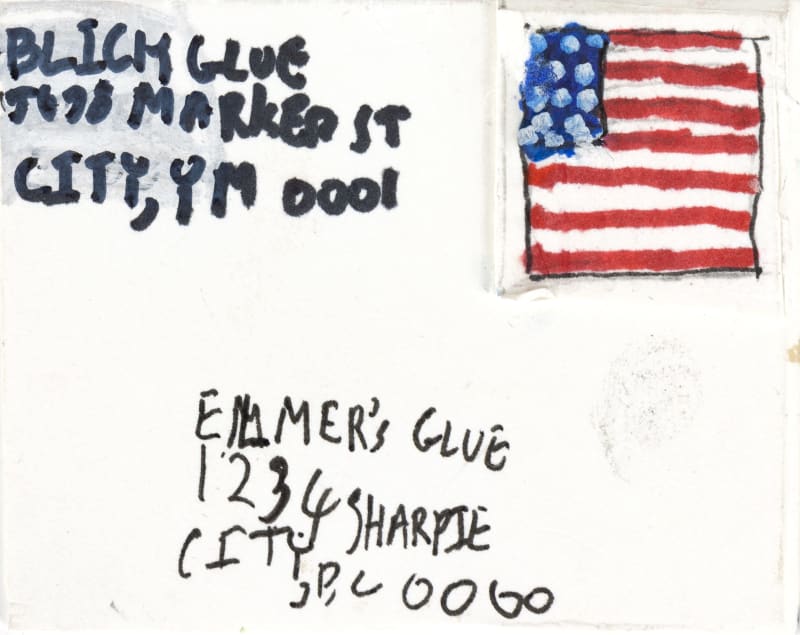 BLICK GLUE
MARKER ST
CITY, YM 0001
EMMER'S GLUE
1234 SHARPIE
CITY, P,C 0060